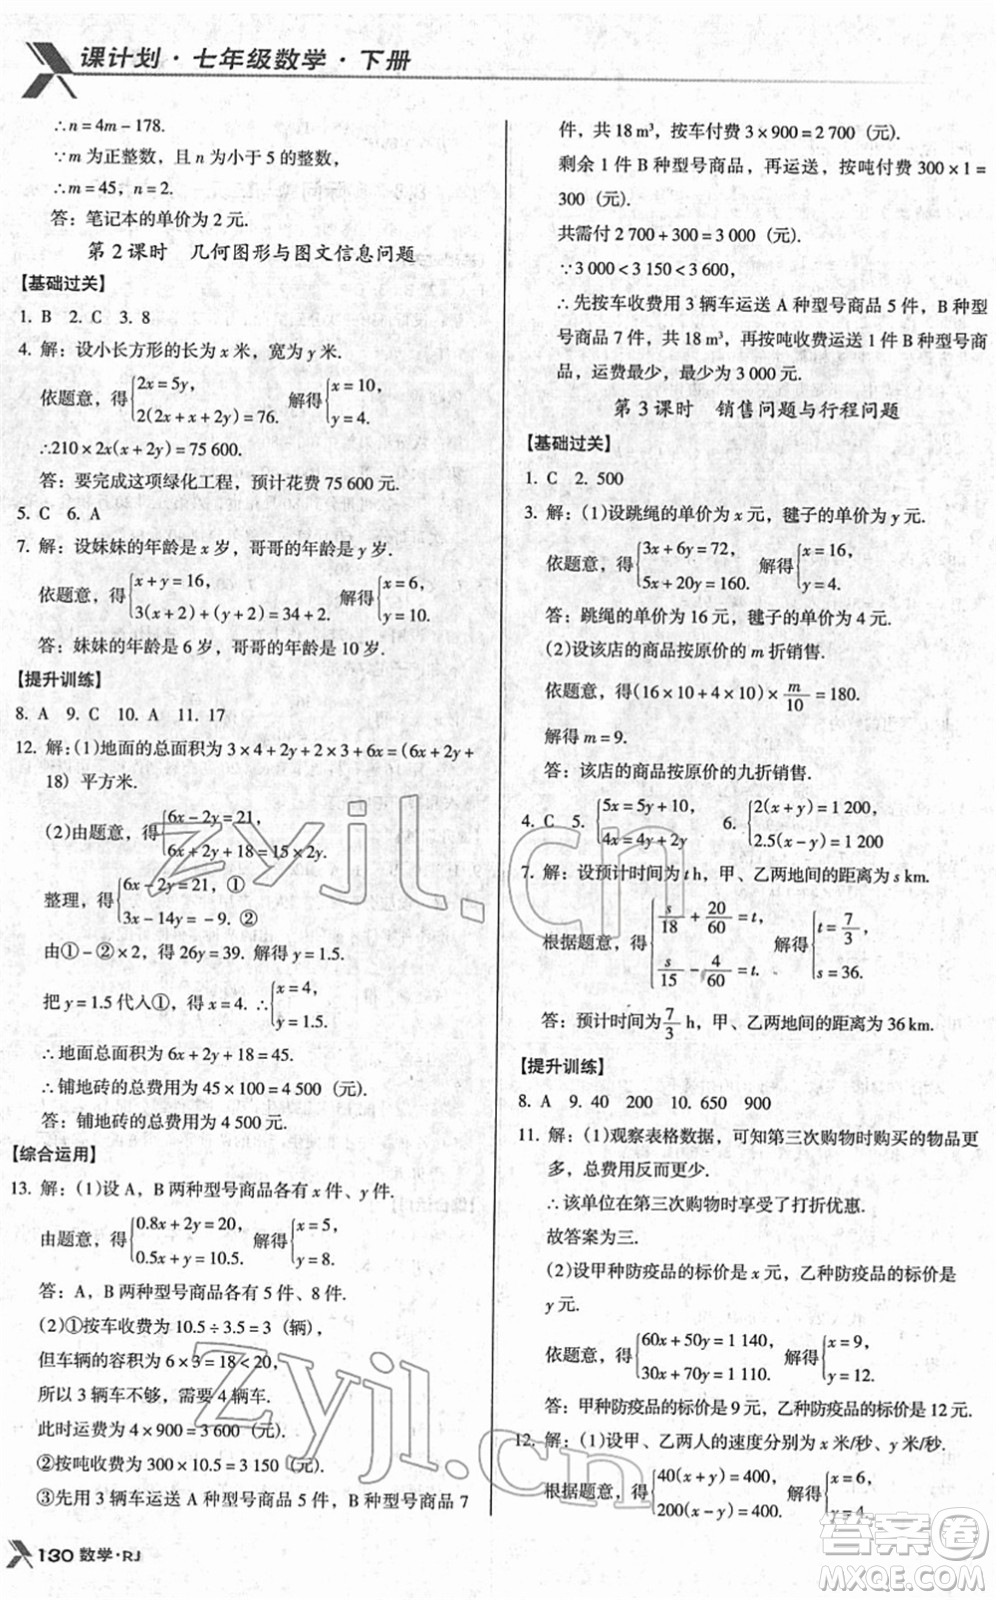 课计划·七年级数学·下册
∴n=4m-178.
∵m 为正整数，且 n 为小于 5 的整数，
∴m=45，n=2.
答：笔记本的单价为 2 元.
第 2 课时 几何图形与图文信息问题
【基础过关】
1. B 2. C 3. 8
4. 解：设小长方形的长为 x 米，宽为 y 米.
依题意，得{2x=5y, 2(2x+x+2y)=76. 解得{x=10, y=4.
∴210×2x(x+2y)=75 600.
答：要完成这项绿化工程，预计花费 75 600 元.
5. C 6. A
7. 解：设妹妹的年龄是 x 岁，哥哥的年龄是 y 岁.
依题意，得{x+y=16, 3(x+2)+(y+2)=34+2. 解得{x=6, y=10.
答：妹妹的年龄是 6 岁，哥哥的年龄是 10 岁.
【提升训练】
8. A 9. C 10. A 11. 17
12. 解：(1)地面的总面积为 3×4+2y+2×3+6x=(6x+2y+
18) 平方米.
(2)由题意，得{6x-2y=21, 6x+2y+18=15×2y.
整理，得{6x-2y=21, ① 3x-14y=-9. ②
由①-②×2，得 26y=39. 解得 y=1.5.
把 y=1.5 代入①，得 x=4. ∴{x=4, y=1.5.
∴地面总面积为 6x+2y+18=45.
∴铺地砖的总费用为 45×100=4 500 (元).
答：铺地砖的总费用为 4 500 元.
【综合运用】
13. 解：(1)设 A，B 两种型号商品各有 x 件、y 件.
由题意，得{0.8x+2y=20, 0.5x+y=10.5. 解得{x=5, y=8.
答：A，B 两种型号商品各有 5 件、8 件.
(2)①按车收费为 10.5÷3.5=3 (辆)，
但车辆的容积为 6×3=18<20，
所以 3 辆车不够，需要 4 辆车.
此时运费为 4×900=3 600 (元).
②按吨收费为 300×10.5=3 150 (元).
③先用 3 辆车运送 A 种型号商品 5 件，B 种型号商品 7
130 数学·RJ
件，共 18 m³，按车付费 3×900=2 700 (元).
剩余 1 件 B 种型号商品，再运送，按吨付费 300×1=
300 (元).
共需付 2 700+300=3 000 (元).
∵3 000<3 150<3 600，
∴先按车收费用 3 辆车运送 A 种型号商品 5 件，B 种型
号商品 7 件，共 18 m³，再按吨收费运送 1 件 B 种型号商
品，运费最少，最少为 3 000 元.
第 3 课时 销售问题与行程问题
【基础过关】
1. C 2. 500
3. 解：(1)设跳绳的单价为 x 元，毽子的单价为 y 元.
依题意，得{3x+6y=72, 5x+20y=160. 解得{x=16, y=4.
答：跳绳的单价为 16 元，毽子的单价为 4 元.
(2)设该店的商品按原价的 m 折销售.
依题意，得(16×10+4×10)×m/10=180.
解得 m=9.
答：该店的商品按原价的九折销售.
4. C 5. {5x=5y+10, 4x=4y+2y 6. {2(x+y)=1 200, 2.5(x-y)=1 200
7. 解：设预计时间为 t h，甲、乙两地间的距离为 s km.
根据题意，得{s/18+20/60=t, s/15-4/60=t. 解得{t=7/3, s=36.
答：预计时间为 7/3 h，甲、乙两地间的距离为 36 km.
【提升训练】
8. A 9. 40 200 10. 650 900
11. 解：(1)观察表格数据，可知第三次购物时购买的物品更
多，总费用反而更少.
∴该单位在第三次购物时享受了打折优惠.
故答案为三.
(2)设甲种防疫品的标价是 x 元，乙种防疫品的标价是
y 元.
依题意，得{60x+50y=1 140, 30x+70y=1 110. 解得{x=9, y=12.
答：甲种防疫品的标价是 9 元，乙种防疫品的标价是 12 元.
12. 解：(1)设甲、乙两人的速度分别为 x 米/秒、y 米/秒.
根据题意，得{40(x+y)=400, 200(x-y)=400. 解得{x=6, y=4.
zyjl.cn
zyjl.cn
答案圈
MXQE.COM